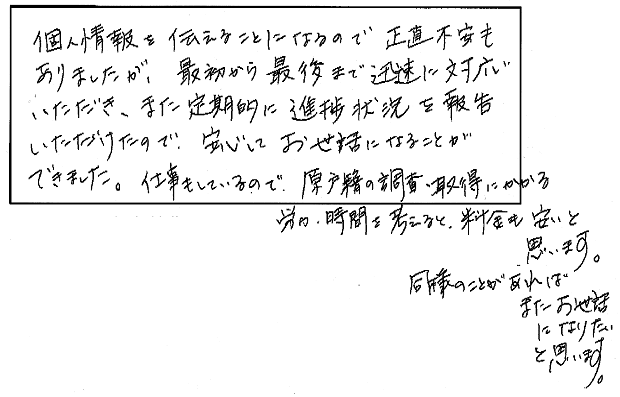 個人情報を伝えることになるので正直不安も
ありましたが、最初から最後まで迅速に対応い
いただき、また定期的に進捗状況を報告
いただけたので、安心して お世話になることが
できました。仕事もしているので、原戸籍の調査・取得にかかる
労力・時間を考えると、料金も安いと
思います。
同様のことがあれば
またお世話
になりたい
と思います。